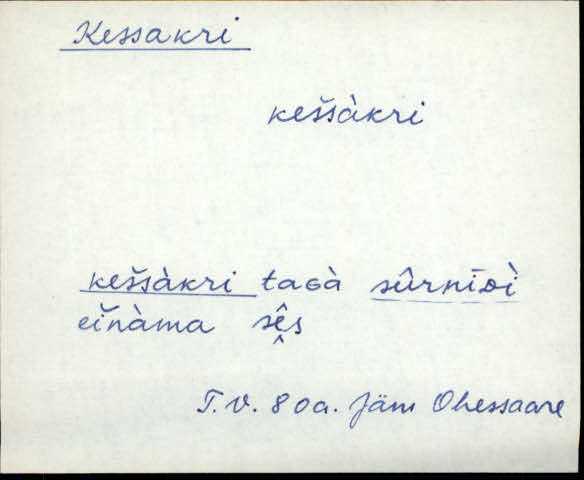 Kessakri
keš̌sàkri
keš̌sàkri taɢà sûrnīᴅì
eǐnàma sê̬s
T.V. 80a. Jäm Ohessaare